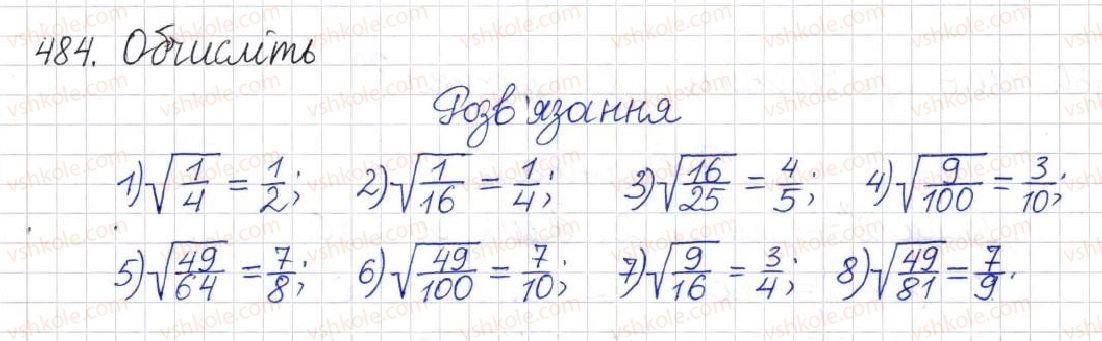 484. Обчисліть
Розв'язання
1) √(1/4) = 1/2; 2) √(1/16) = 1/4; 3) √(16/25) = 4/5; 4) √(9/100) = 3/10;
5) √(49/64) = 7/8; 6) √(49/100) = 7/10; 7) √(9/16) = 3/4; 8) √(49/81) = 7/9.
vshkole.com